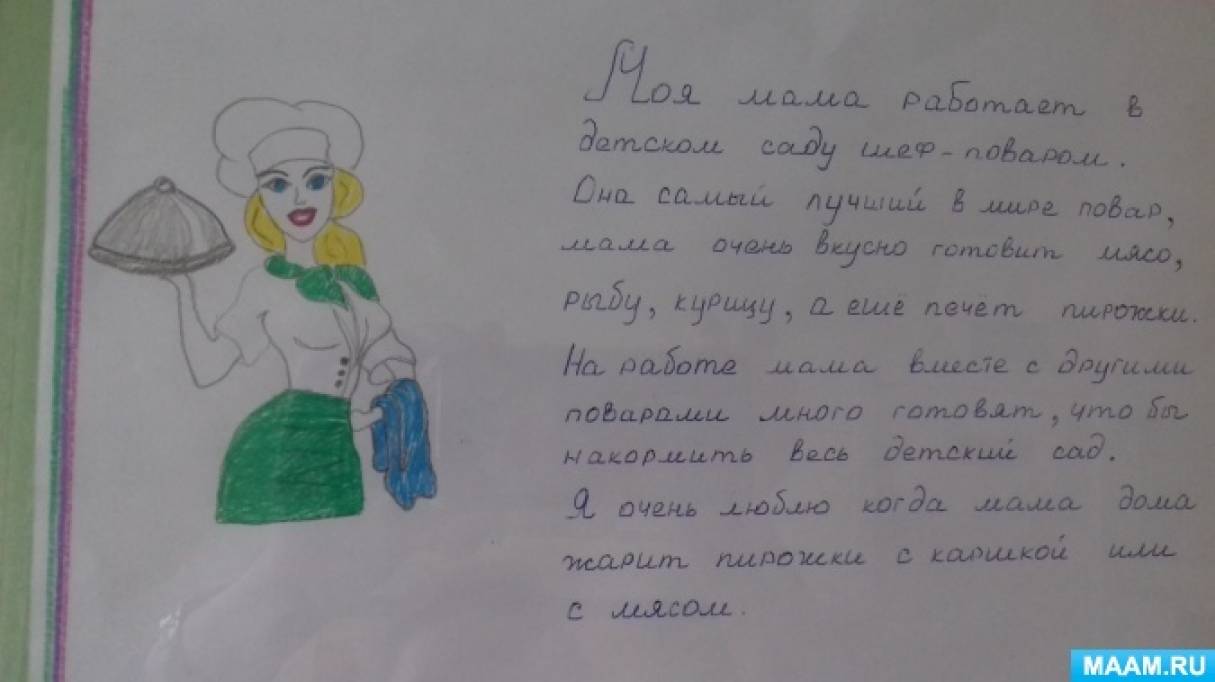 Моя мама работает в
детском саду шеф-поваром.
Она самый лучший в мире повар,
мама очень вкусно готовит мясо,
рыбу, курицу, а ешё печёт пирожки.
На работе мама вместе с другими
поварами много готовят, что бы
накормить весь детский сад.
Я очень люблю когда мама дома
жарит пирожки с каршкой или
с мясом.
MAAM.RU